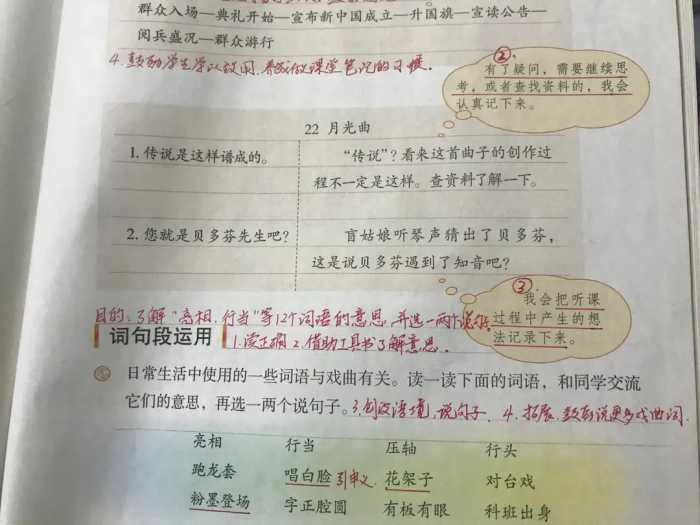 群众入场—典礼开始—宣布新中国成立—升国旗—宣读公告—
阅兵盛况—群众游行
4.鼓励学生学以致用,养成做课堂笔记的习惯.
②
有了疑问，需要继续思
考，或者查找资料的，我会
认真记下来。
22 月光曲
1. 传说是这样谱成的。
“传说”？看来这首曲子的创作过
程不一定是这样。查资料了解一下。
2. 您就是贝多芬先生吧？
盲姑娘听琴声猜出了贝多芬，
这是说贝多芬遇到了知音吧？
③
我会把听课
过程中产生的想
法记录下来。
目的:了解“亮相.行当”等12个词语的意思,并选一两个说句.
词句段运用
1.读正确 2.借助工具书了解意思.
日常生活中使用的一些词语与戏曲有关。读一读下面的词语，和同学交流
它们的意思，再选一两个说句子。
3.创设语境,说句子. 4.拓展.鼓励说更多戏曲词.
亮相 行当 压轴 行头
跑龙套 唱白脸 引申义. 花架子 对台戏
粉墨登场 字正腔圆 有板有眼 科班出身